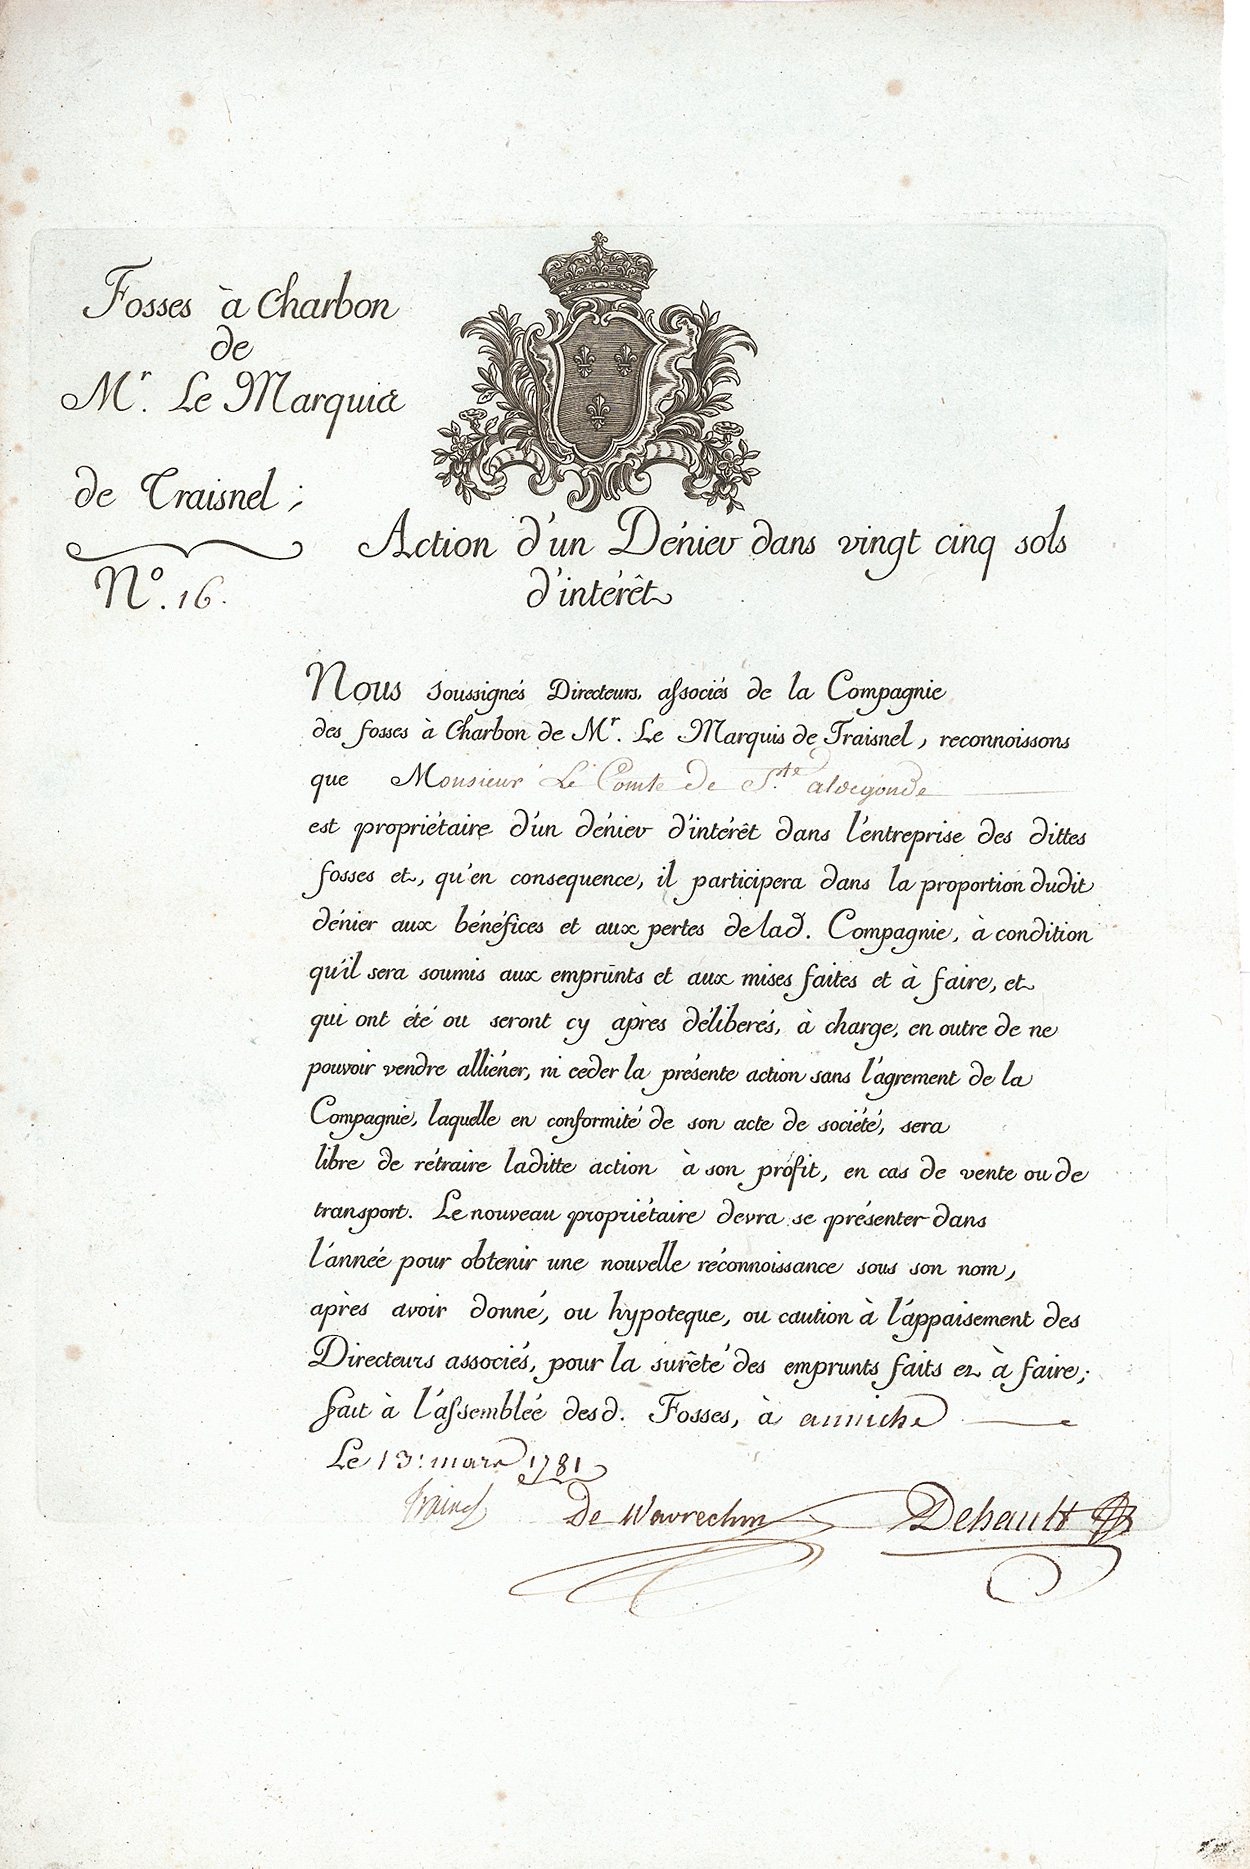 Fosses à Charbon
de
Mr. Le Marquis
de Traisnel;
No. 16.
Action d'un Dénier dans vingt cinq sols
d'intérêt
Nous soussignés Directeurs, associés de la Compagnie
des fosses à Charbon de Mr. Le Marquis de Traisnel, reconnoissons
que Monsieur Le Comte de Ste. aldegonde
est propriétaire d'un dénier d'intérêt dans l'entreprise des dittes
fosses et, qu'en consequence, il participera dans la proportion dudit
dénier aux bénéfices et aux pertes de lad. Compagnie, à condition
qu'il sera soumis aux emprunts et aux mises faites et à faire, et
qui ont été ou seront cy après déliberés, à charge, en outre de ne
pouvoir vendre alliéner, ni ceder la présente action sans l'agrement de la
Compagnie, laquelle en conformité de son acte de société, sera
libre de rétraire laditte action à son profit, en cas de vente ou de
transport. Le nouveau propriétaire devra se présenter dans
l'année pour obtenir une nouvelle réconnoissance sous son nom,
après avoir donné, ou hypoteque, ou caution à l'appaisement des
Directeurs associés, pour la surêté des emprunts faits et à faire;
fait à l'assemblée desd. Fosses, à anniche
Le 13: mars 1781
Trainel De Wavrechin Dehault